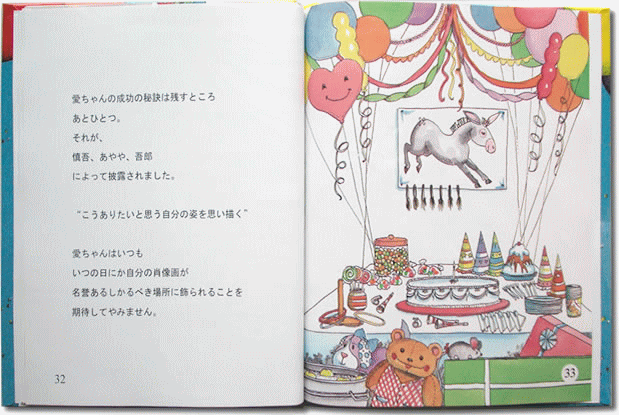 愛ちゃんの成功の秘訣は残すところ
あとひとつ。
それが、
慎吾、あやや、吾郎
によって披露されました。
“こうありたいと思う自分の姿を思い描く”
愛ちゃんはいつも
いつの日にか自分の肖像画が
名誉あるしかるべき場所に飾られることを
期待してやみません。
32
33